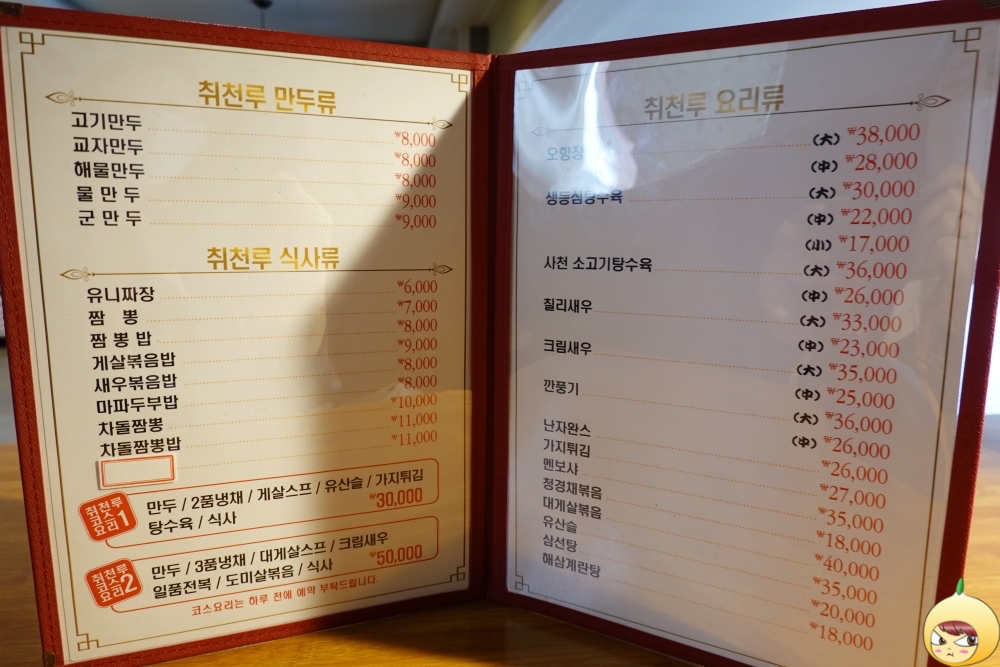 취천루 만두류
고기만두 ₩8,000
교자만두 ₩8,000
해물만두 ₩8,000
물 만 두 ₩9,000
군 만 두 ₩9,000
취천루 식사류
유니짜장 ₩6,000
짬 뽕 ₩7,000
짬 뽕 밥 ₩8,000
게살볶음밥 ₩9,000
새우볶음밥 ₩8,000
마파두부밥 ₩8,000
차돌짬뽕 ₩10,000
차돌짬뽕밥 ₩11,000
₩11,000
취천루
코스
요리1
만두 / 2품냉채 / 게살스프 / 유산슬 / 가지튀김
탕수육 / 식사 ₩30,000
취천루
코스
요리2
만두 / 3품냉채 / 대게살스프 / 크림새우
일품전복 / 도미살볶음 / 식사 ₩50,000
코스요리는 하루 전에 예약 부탁드립니다.
취천루 요리류
오향장 (大) ₩38,000
(中) ₩28,000
생등심탕수육 (大) ₩30,000
(中) ₩22,000
(小) ₩17,000
사천 소고기탕수육 (大) ₩36,000
(中) ₩26,000
칠리새우 (大) ₩33,000
(中) ₩23,000
크림새우 (大) ₩35,000
(中) ₩25,000
깐풍기 (大) ₩36,000
(中) ₩26,000
난자완스 ₩26,000
가지튀김 ₩27,000
멘보샤 ₩35,000
청경채볶음 ₩18,000
대게살볶음 ₩40,000
유산슬 ₩35,000
삼선탕 ₩20,000
해삼계란탕 ₩18,000